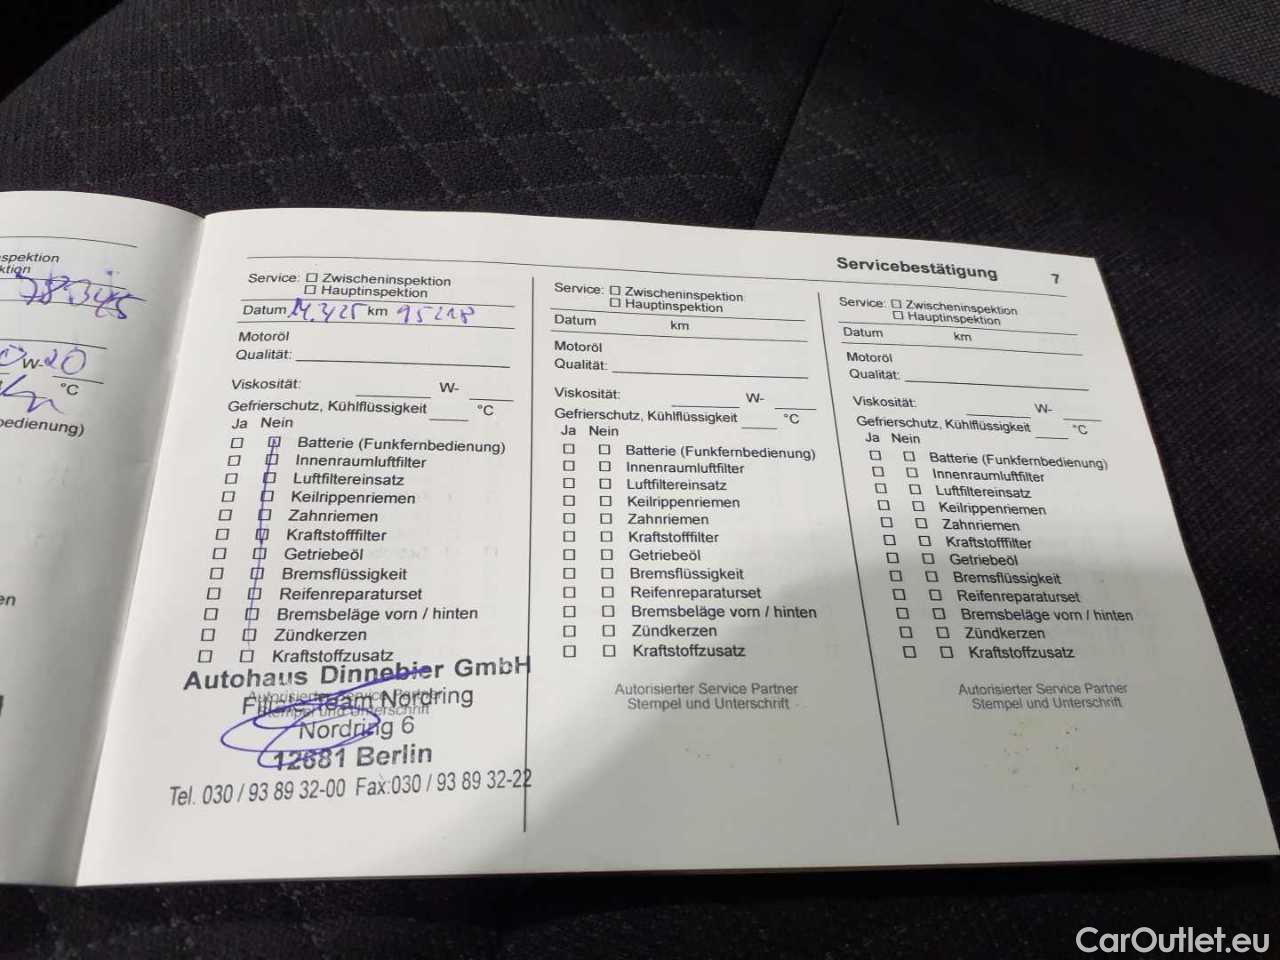 spektion
ktion
78345
0 W-20
°C
bedienung)
en
Servicebestätigung 7
Service: ☐ Zwischeninspektion
☐ Hauptinspektion
Datum 14.3/25 km 95218
Motoröl
Qualität:
Viskosität: W-
Gefrierschutz, Kühlflüssigkeit °C
Ja Nein
☐ ☐ Batterie (Funkfernbedienung)
☐ ☐ Innenraumluftfilter
☐ ☐ Luftfiltereinsatz
☐ ☐ Keilrippenriemen
☐ ☐ Zahnriemen
☐ ☐ Kraftstofffilter
☐ ☐ Getriebeöl
☐ ☐ Bremsflüssigkeit
☐ ☐ Reifenreparaturset
☐ ☐ Bremsbeläge vorn / hinten
☐ ☐ Zündkerzen
☐ ☐ Kraftstoffzusatz
Autorisierter Service Partner
Stempel und Unterschrift
Autohaus Dinnebier GmbH
Filiale Team Nordring
Nordring 6
12681 Berlin
Tel. 030 / 93 89 32-00 Fax:030 / 93 89 32-22
Service: ☐ Zwischeninspektion
☐ Hauptinspektion
Datum km
Motoröl
Qualität:
Viskosität: W-
Gefrierschutz, Kühlflüssigkeit °C
Ja Nein
☐ ☐ Batterie (Funkfernbedienung)
☐ ☐ Innenraumluftfilter
☐ ☐ Luftfiltereinsatz
☐ ☐ Keilrippenriemen
☐ ☐ Zahnriemen
☐ ☐ Kraftstofffilter
☐ ☐ Getriebeöl
☐ ☐ Bremsflüssigkeit
☐ ☐ Reifenreparaturset
☐ ☐ Bremsbeläge vorn / hinten
☐ ☐ Zündkerzen
☐ ☐ Kraftstoffzusatz
Autorisierter Service Partner
Stempel und Unterschrift
Service: ☐ Zwischeninspektion
☐ Hauptinspektion
Datum km
Motoröl
Qualität:
Viskosität: W-
Gefrierschutz, Kühlflüssigkeit °C
Ja Nein
☐ ☐ Batterie (Funkfernbedienung)
☐ ☐ Innenraumluftfilter
☐ ☐ Luftfiltereinsatz
☐ ☐ Keilrippenriemen
☐ ☐ Zahnriemen
☐ ☐ Kraftstofffilter
☐ ☐ Getriebeöl
☐ ☐ Bremsflüssigkeit
☐ ☐ Reifenreparaturset
☐ ☐ Bremsbeläge vorn / hinten
☐ ☐ Zündkerzen
☐ ☐ Kraftstoffzusatz
Autorisierter Service Partner
Stempel und Unterschrift
CarOutlet.eu